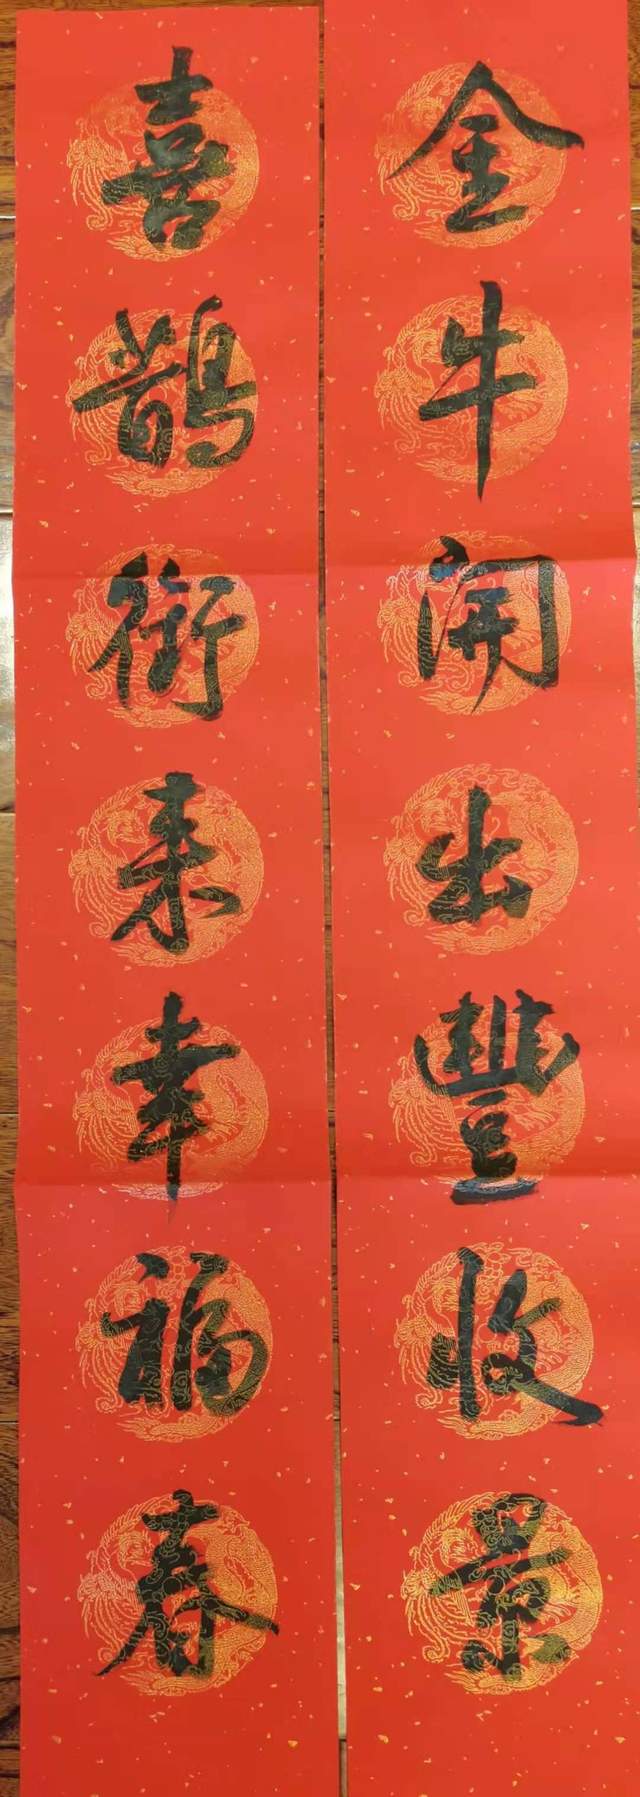 金牛開出豐收景
喜鵲銜来幸福春